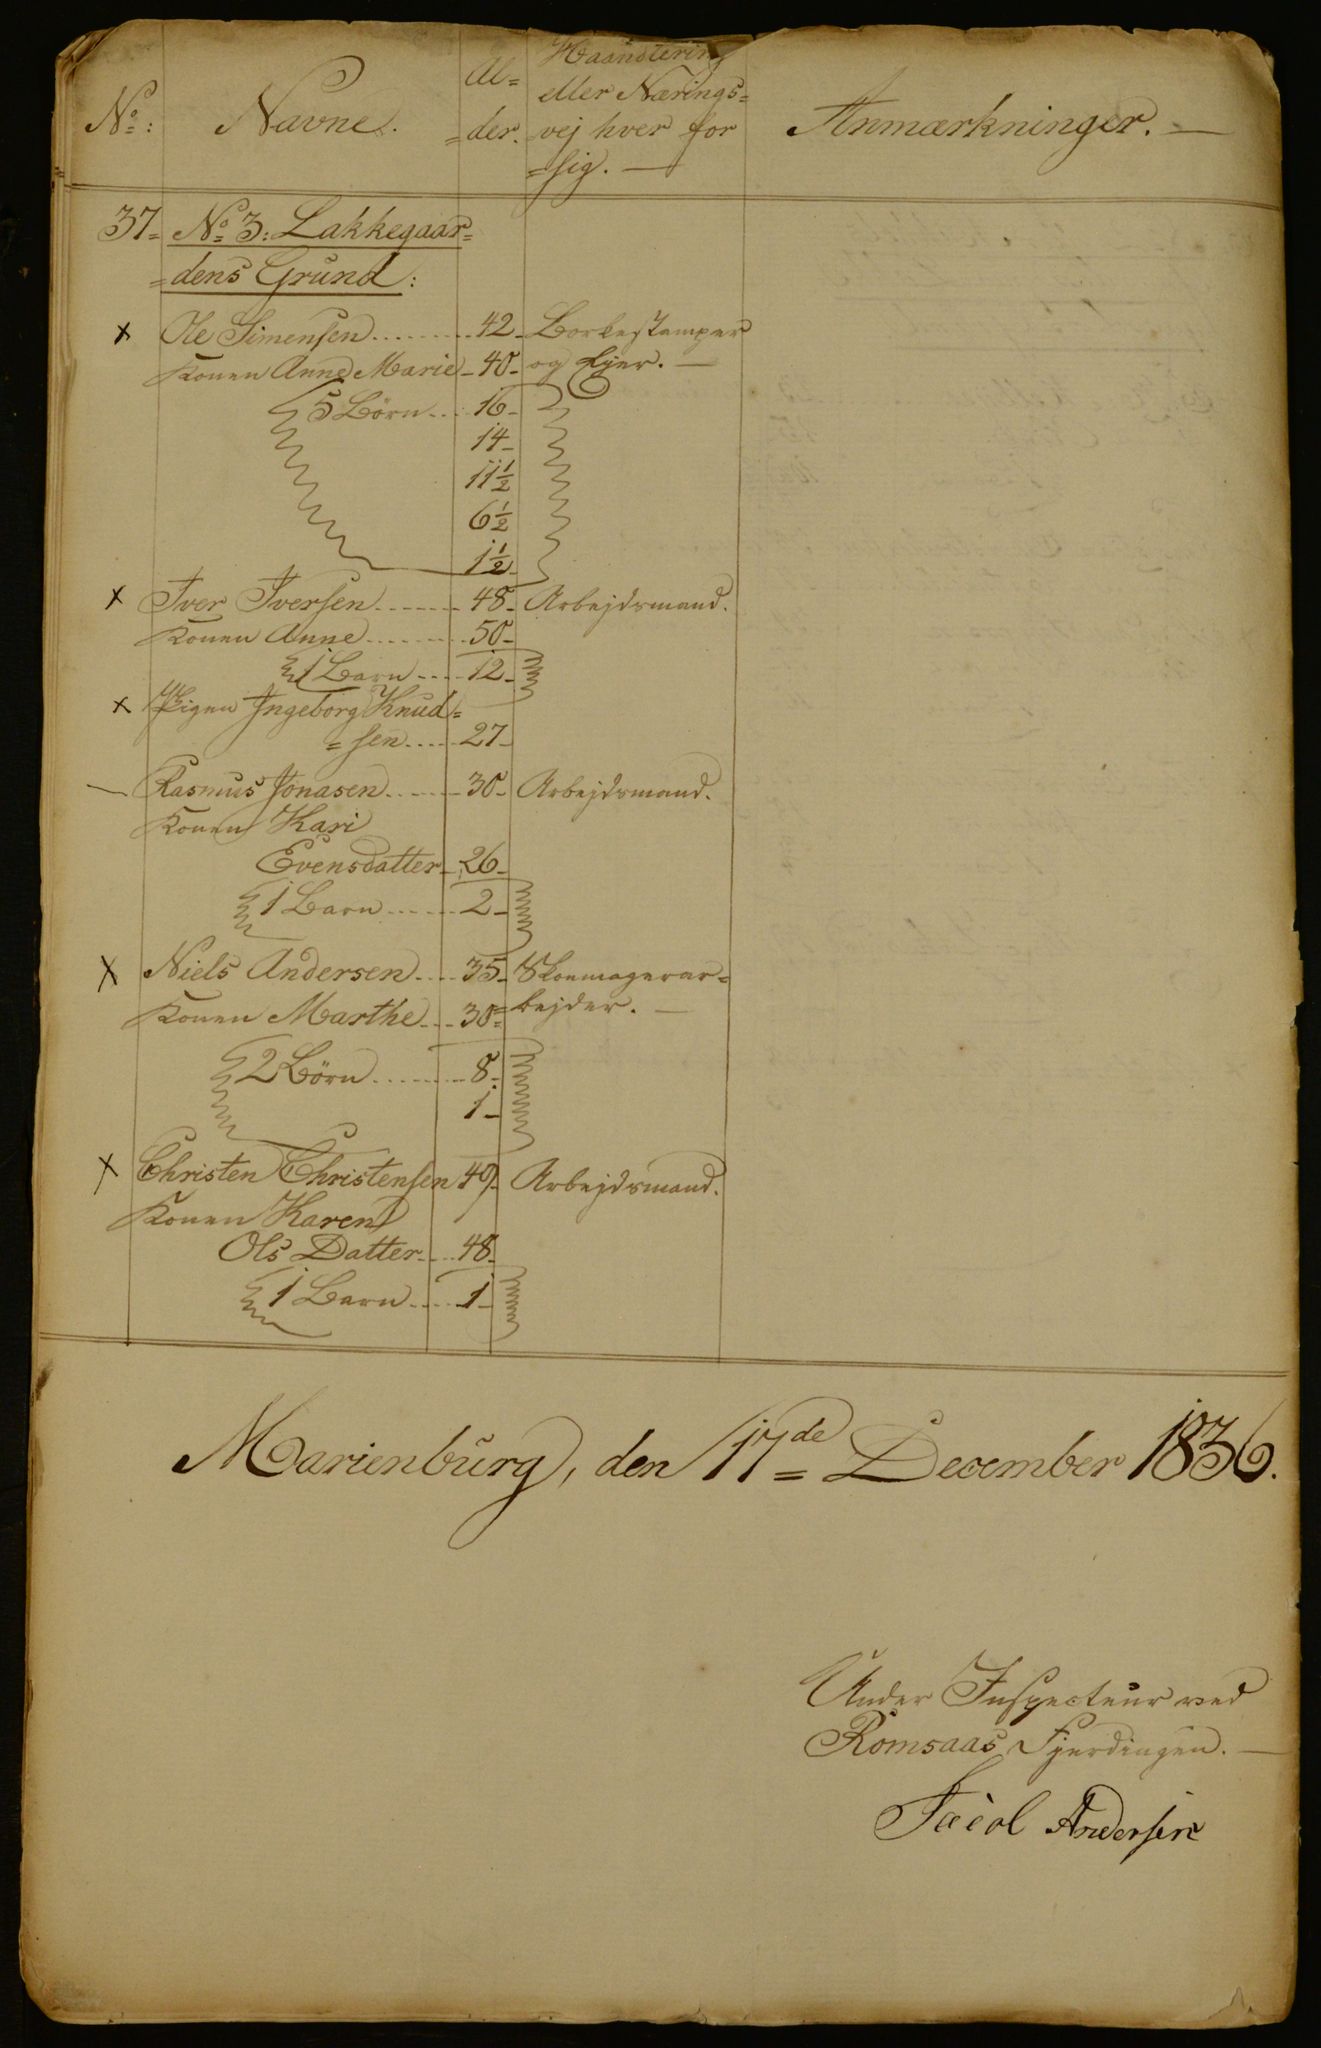 No: Navne. Al= Haandtering Anmærkninger. —
=der. eller Nærings=
=vej hver for
=sig. —
37= No 3: Lakkegaar=
=dens Grund:
x Ole Simensen ........ 42 - Borkestamper
Konen Anne Marie - 40 - og Ejer. —
5 Börn ... 16 -
14 -
11½
6½
1½ -
x Iver Iversen ....... 48 - Arbejdsmand.
Konen Anne ........ 50 -
1 Barn .... 12 -
x Pigen Ingeborg Knud=
=sen ..... 27 -
— Rasmus Jonasen ...... 30 - Arbejdsmand.
Konen Kari
Evensdatter - 26 -
1 Barn ...... 2 -
x Niels Andersen .... 35 - Skomagerar=
Konen Marthe ... 30 = =bejder. —
2 Börn ........ 8 -
1 -
x Christen Christensen 49 - Arbejdsmand.
Konen Karen
Ols Datter ... 48 -
1 Barn ..... 1 -
Marienburg, den 17de = December 1836.
Under Inspecteur ved
Romsaas Fjerdingen. —
Jacob Andersen